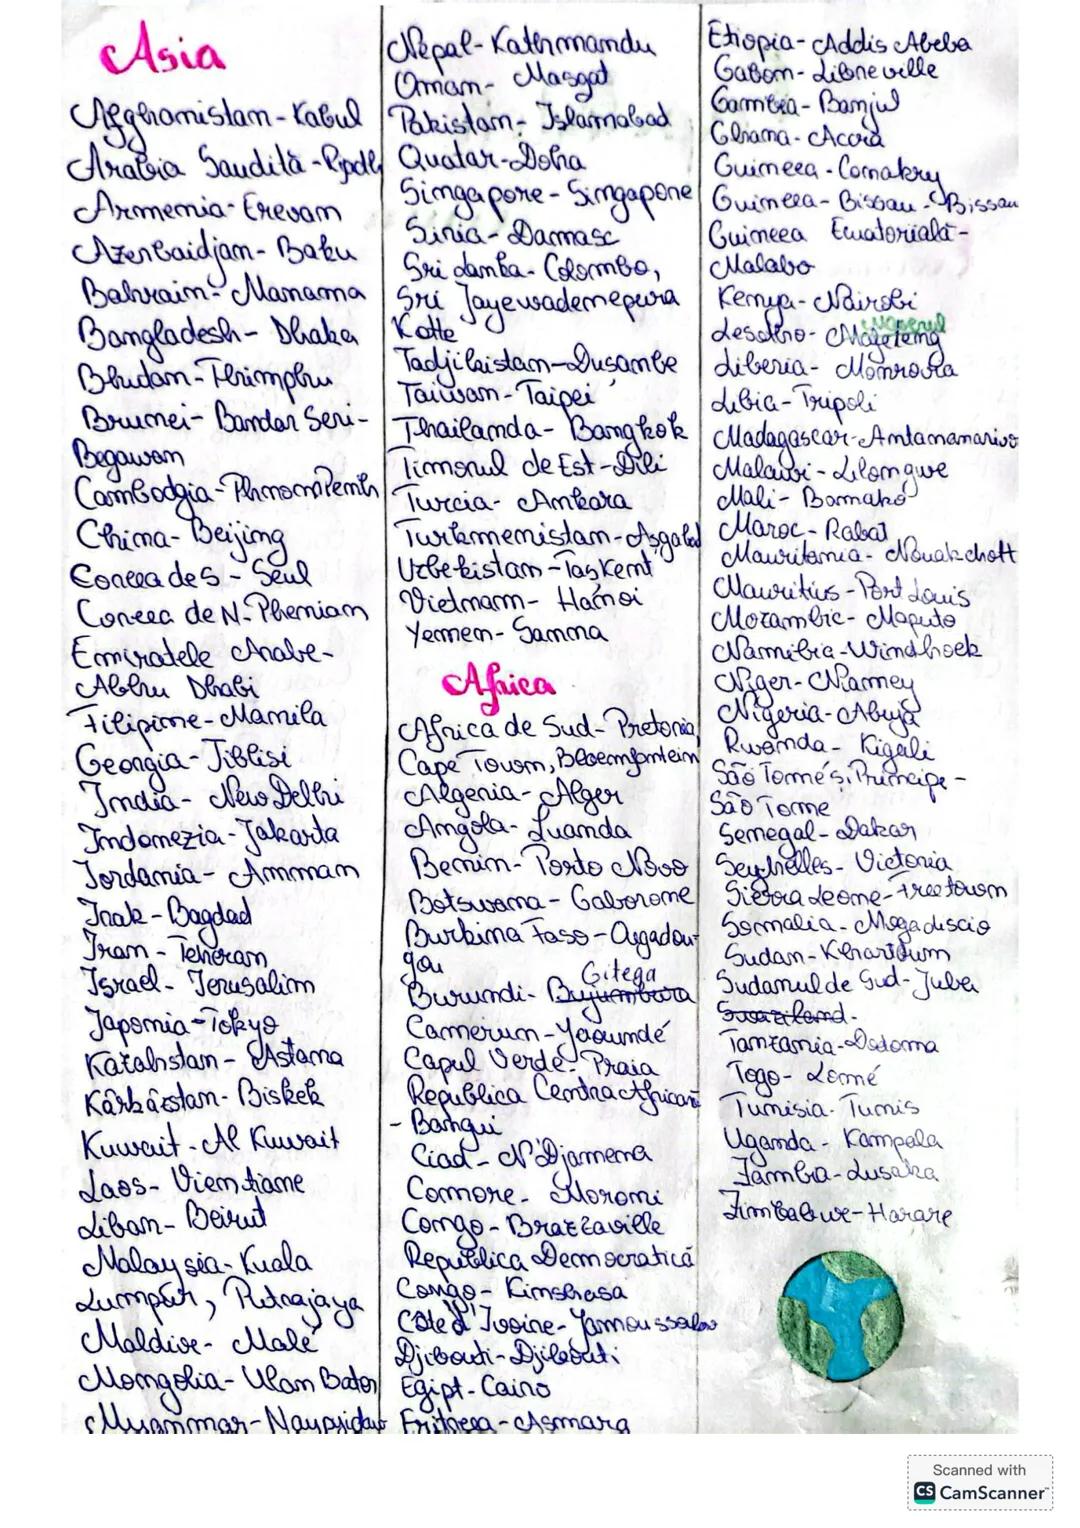 Asia
Afghanistan - Kabul
Arabia Saudită - Riyadh
Armenia - Erevan
Azerbaidjan - Baku
Bahrain - Manama
Bangladesh - Dhaka
Bhutan - Thimphu
Brunei - Bandar Seri -
Begawan
Cambodgia - Phnom Penh
China - Beijing
Coreea de S - Seul
Coreea de N - Phenian
Emiratele Arabe -
Abhu Dhabi
Filipine - Manila
Georgia - Tiblisi
India - New Delhi
Indonezia - Jakarta
Iordania - Amman
Irak - Bagdad
Iran - Teheran
Israel - Ierusalim
Japonia - Tokyo
Kazahstan - Astana
Kârgâzstan - Biskek
Kuwait - Al Kuwait
Laos - Vientiane
Liban - Beirut
Malaysia - Kuala
Lumpur, Putrajaya
Maldive - Malé
Mongolia - Ulan Bator
Myanmar - Naypyidaw
Nepal - Kathmandu
Oman - Masqat
Pakistan - Islamabad
Quatar - Doha
Singapore - Singapore
Siria - Damasc
Sri Lanka - Colombo,
Sri Jayewardenepura
Kotte
Tadjikistan - Dusambe
Taiwan - Taipei
Thailanda - Bangkok
Timorul de Est - Dili
Turcia - Ankara
Turkmenistan - Asgabad
Uzbekistan - Taşkent
Vietnam - Hanoi
Yemen - Sanna
Africa
Africa de Sud - Pretoria,
Cape Town, Bloemfontein
Algeria - Alger
Angola - Luanda
Benin - Porto Novo
Botswana - Gaborone
Burkina Faso - Ougadou-
gou
Gitega
Burundi - Bujumbura
Camerun - Yaoundé
Capul Verde - Praia
Republica CentraAfricană
- Bangui
Ciad - N'Djamena
Comore - Moroni
Congo - Brazzaville
Republica Democratică
Congo - Kinshasa
Côte d'Ivoire - Yamoussokro
Djibouti - Djibouti
Egipt - Cairo
Eritreea - Asmara
Etiopia - Addis Abeba
Gabon - Libreville
Gambia - Banjul
Ghana - Accra
Guineea - Conakry
Guineea - Bissau - Bissau
Guineea Ecuatorială -
Malabo
Kenya - Nairobi
Maserul
Lesotho - Mafeteng
Liberia - Monrovia
Libia - Tripoli
Madagascar - Antananarivo
Malawi - Lilongwe
Mali - Bamako
Maroc - Rabat
Mauritania - Nouakchott
Mauritius - Port Louis
Mozambic - Maputo
Namibia - Windhoek
Niger - Niamey
Nigeria - Abuja
Rwanda - Kigali
São Tomé și Principe -
São Tome
Senegal - Dakar
Seychelles - Victoria
Sierra Leone - Freetown
Somalia - Mogadiscio
Sudan - Khartoum
Sudanul de Sud - Juba
Swaziland -
Tanzania - Dodoma
Togo - Lomé
Tunisia - Tunis
Uganda - Kampala
Zambia - Lusaka
Zimbabwe - Harare
Scanned with
CS CamScanner